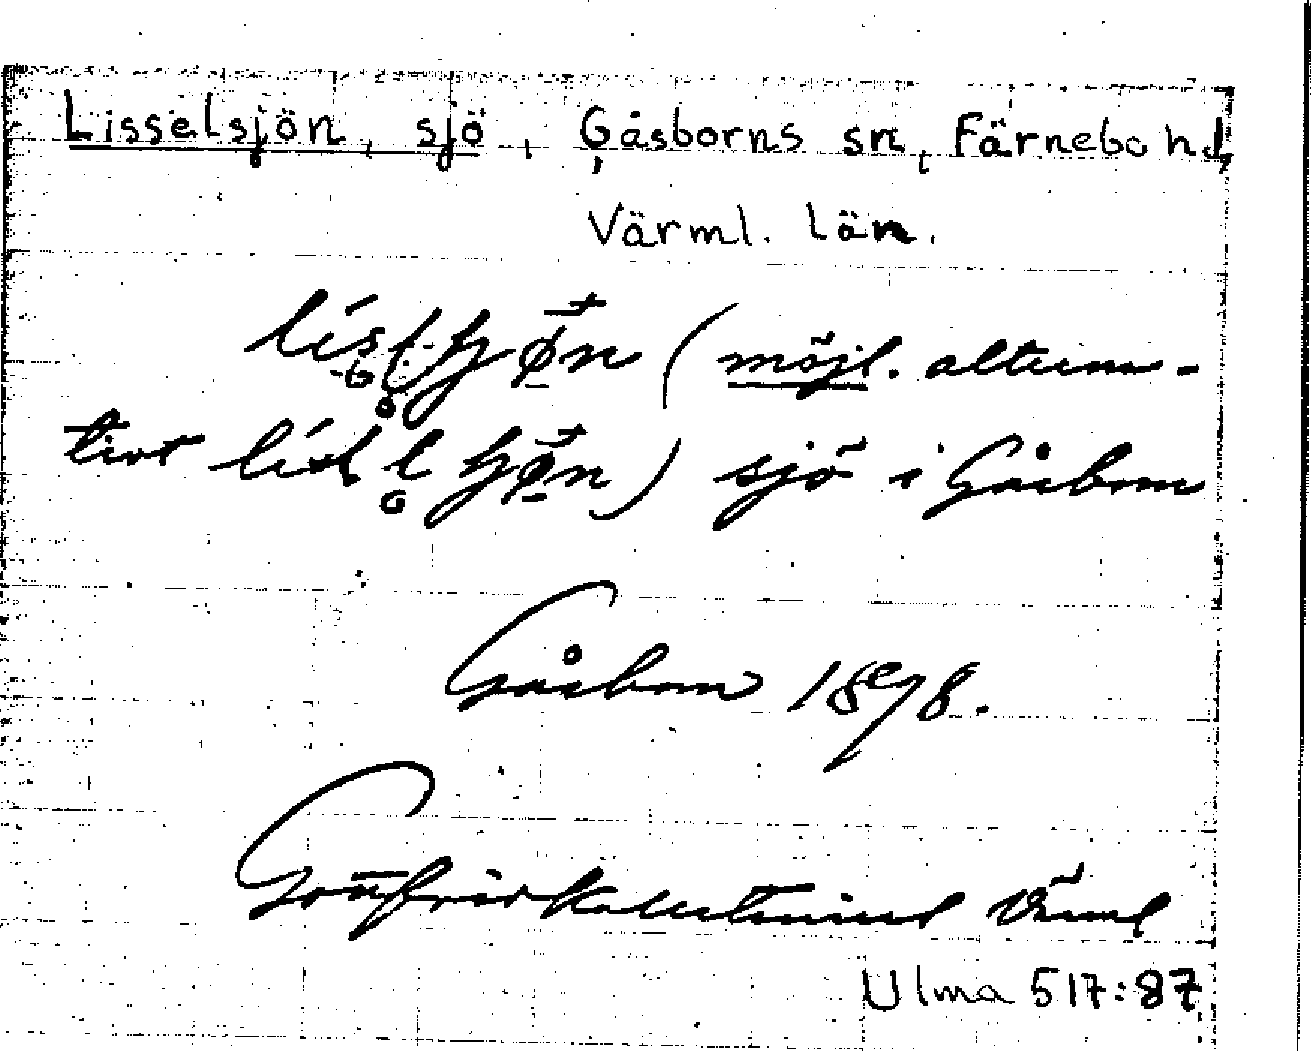 Lisselsjön, sjö, Gåsborns sn, Färnebo hd,
Värml. län.
(möjl. alterna-
tivt) sjö i Gåsborn
Gåsborn 1898.
Gottfrid Kallstenius Värml
Ulma 517:87